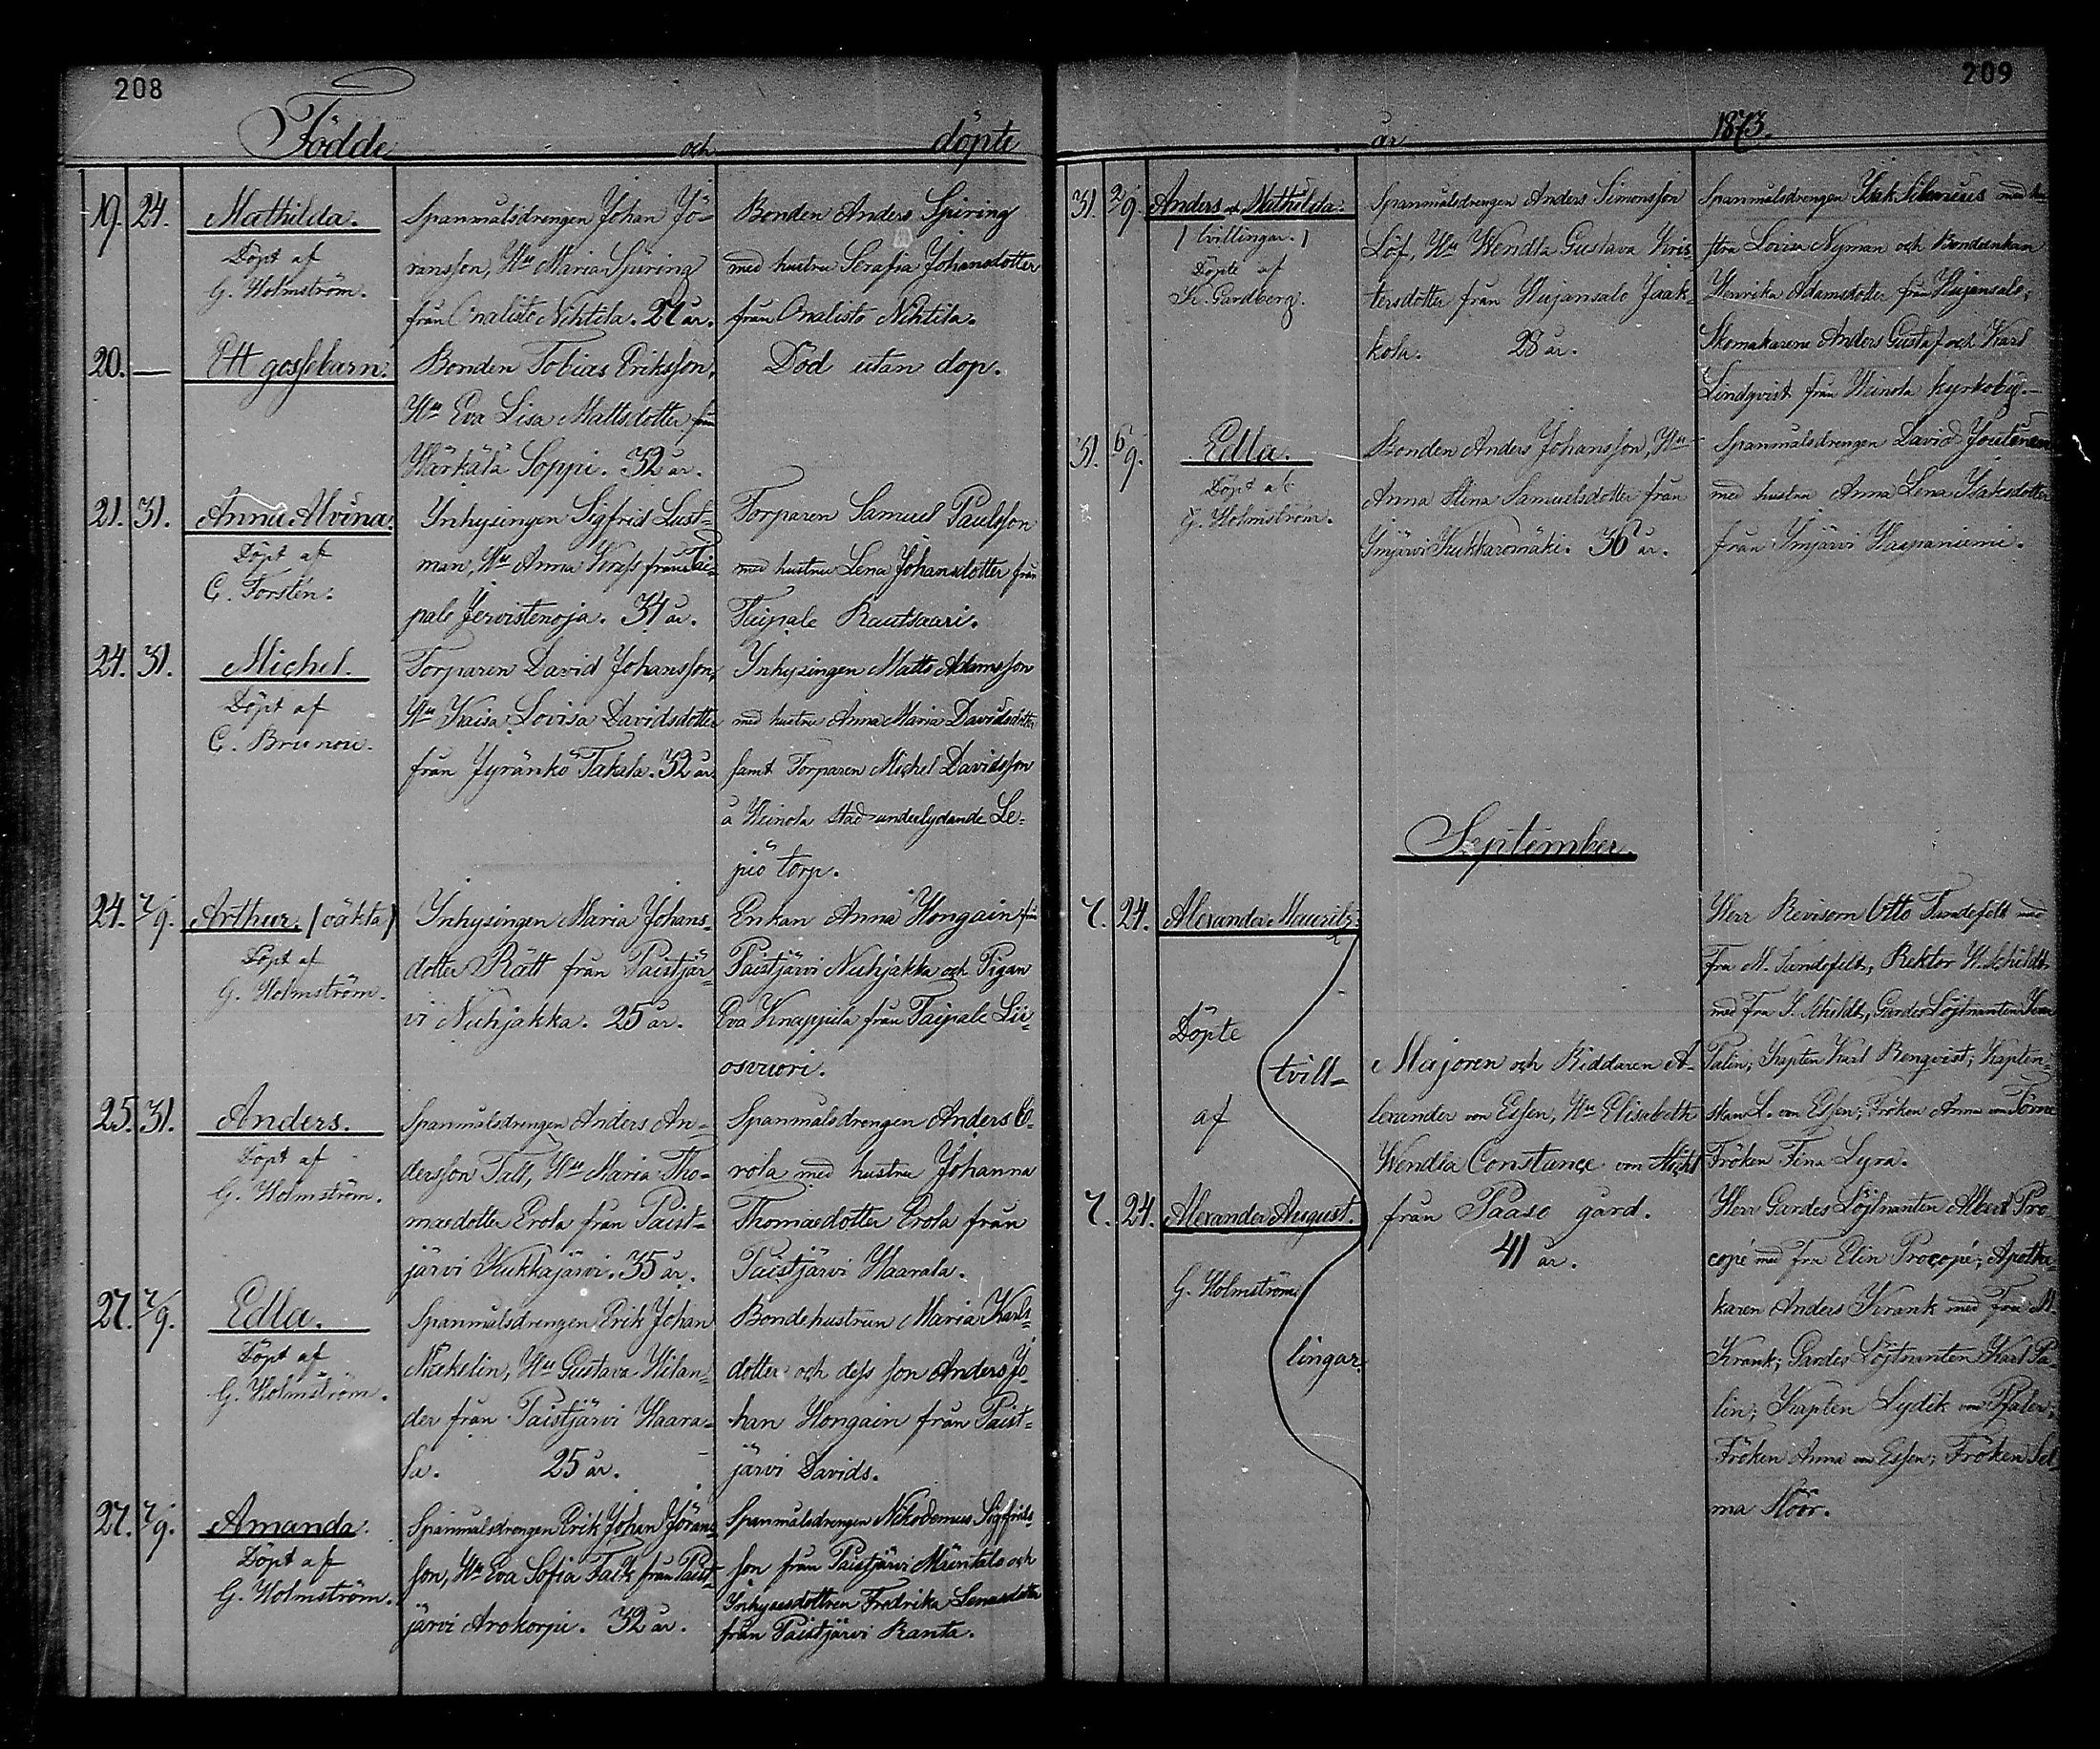 208
Födde och döpte
19. 24. Mathilda.
Döpt af
G. Holmström.
Spanmålsdrengen Johan Jö-
ransson, Hu Maria Spiring
från Onalisto Nihtilä. 27 år.
Bonden Anders Spiring
med hustru Serafia Johansdotter
från Onalisto Nihtila.
20. — Ett gossebarn.
Bonden Tobias Eriksson,
Hu Eva Lisa Mattsdotter från
Härkälä Soppi. 32 år.
Död utan dop.
21. 31. Anna Alvina.
Döpt af
C. Forstén.
Inhysingen Sigfrid Lust-
man, Hu Anna från Tai-
pale Jervistenoja. 34 år.
Torparen Samuel Paulsson
med hustru Lena Johansdotter från
Taipale Rautsaari.
24. 31. Michel.
Döpt af
C. Brunou.
Torparen David Johansson,
Hu Kaisa Lovisa Davidsdotter
från Jyränkö Takala. 32 år.
Inhysingen Matts Adamsson
med hustru Anna Maria Davidsdotter
samt Torparen Michel Davidsson
å Heinola stad underlydande Le-
piö torp.
24. 7/9. Arthur. (oäkta)
Döpt af
G. Holmström.
Inhysingen Maria Johans-
dotter Rätt från Paistjär-
vi Nuhjakka. 25 år.
Enkan Anna Hongain från
Paistjärvi Nuhjakka och Pigan
Eva Knappila från Taipale Lii-
osvuori.
25. 31. Anders.
Döpt af
G. Holmström.
Spanmålsdrengen Anders An-
dersson Tall, Hu Maria Tho-
masdotter Erola från Paist-
järvi Kukkajärvi. 35 år.
Spanmålsdrengen Anders E-
rola med hustru Johanna
Thomasdotter Erola från
Paistjärvi Haarala.
27. 7/9. Edla.
Döpt af
G. Holmström.
Spanmålsdrengen Erik Johan
Mäkelin, Hu Gustava Hilan-
der från Paistjärvi Haara-
la. 25 år.
Bondehustrun Maria Karls-
dotter och dess son Anders Jo-
han Hongain från Paist-
järvi Davids.
27. 7/9. Amanda.
Döpt af
G. Holmström.
Spanmålsdrengen Erik Johan Jörans-
son, Hu Eva Sofia Falk från Paist-
järvi Arokorpi. 32 år.
Spanmålsdrengen Nikodemus Sigfrids-
son från Paistjärvi Mäntälä och
Inhysesdottren Fredrika Lenasdotter
från Paistjärvi Ranta.
209
år 1873.
31. 2/9 Anders och Mathilda.
/ tvillingar. /
Döpte af
K. Gardberg.
Spanmålsdrengen Anders Simonsson
Löf, Hu Wendla Gustava Kris-
tersdotter från Hujansalo Jaak-
kola. 28 år.
Spanmålsdrengen Isak med hu-
stru Lovisa Nyman och Bondenkan
Henrika Adamsdotter från Hujansalo,
Skomakarene Anders Gustaf och Karl
Lindqvist från Heinola kyrkoby.—
31. 6/9. Edla.
Döpt af
G. Holmström.
Bonden Anders Johansson, Hu
Anna Stina Samuelsdotter från
Imjärvi Kukkaromäki. 36 år.
Spanmålsdrengen David Joutsenen
med hustru Anna Lena Isaksdotter
från Imjärvi Haapaniemi.
September.
7. 24. Alexander Mauritz.
Döpte
tvill-
af
7. 24. Alexander August.
G. Holmström
lingar.
Majoren och Riddaren A-
lexander von Essen, Hu Elisabeth
Wendla Constance von
från Paaso gård.
41 år.
Herr Revisorn Otto Tandefelt med
Fru M. Tandefelt; Rektor W. Schildt
med Fru I. Schildt, Gardes Löjtnanten Ivan
Palin; Kapten Karl Renqvist; Kapten-
skan L. von Essen; Fröken Anna von Törne
Fröken Fina Lyra.
Herr Gardes Löjtnanten Albert Pro-
copé med Fru Elin Procopé; Apothe-
karen Anders Krank med Fru M.
Krank; Gardes Löjtnanten Karl Pa-
lin; Kapten Lydik von Pfaler;
Fröken Anna von Essen; Fröken Sel-
ma Höör.